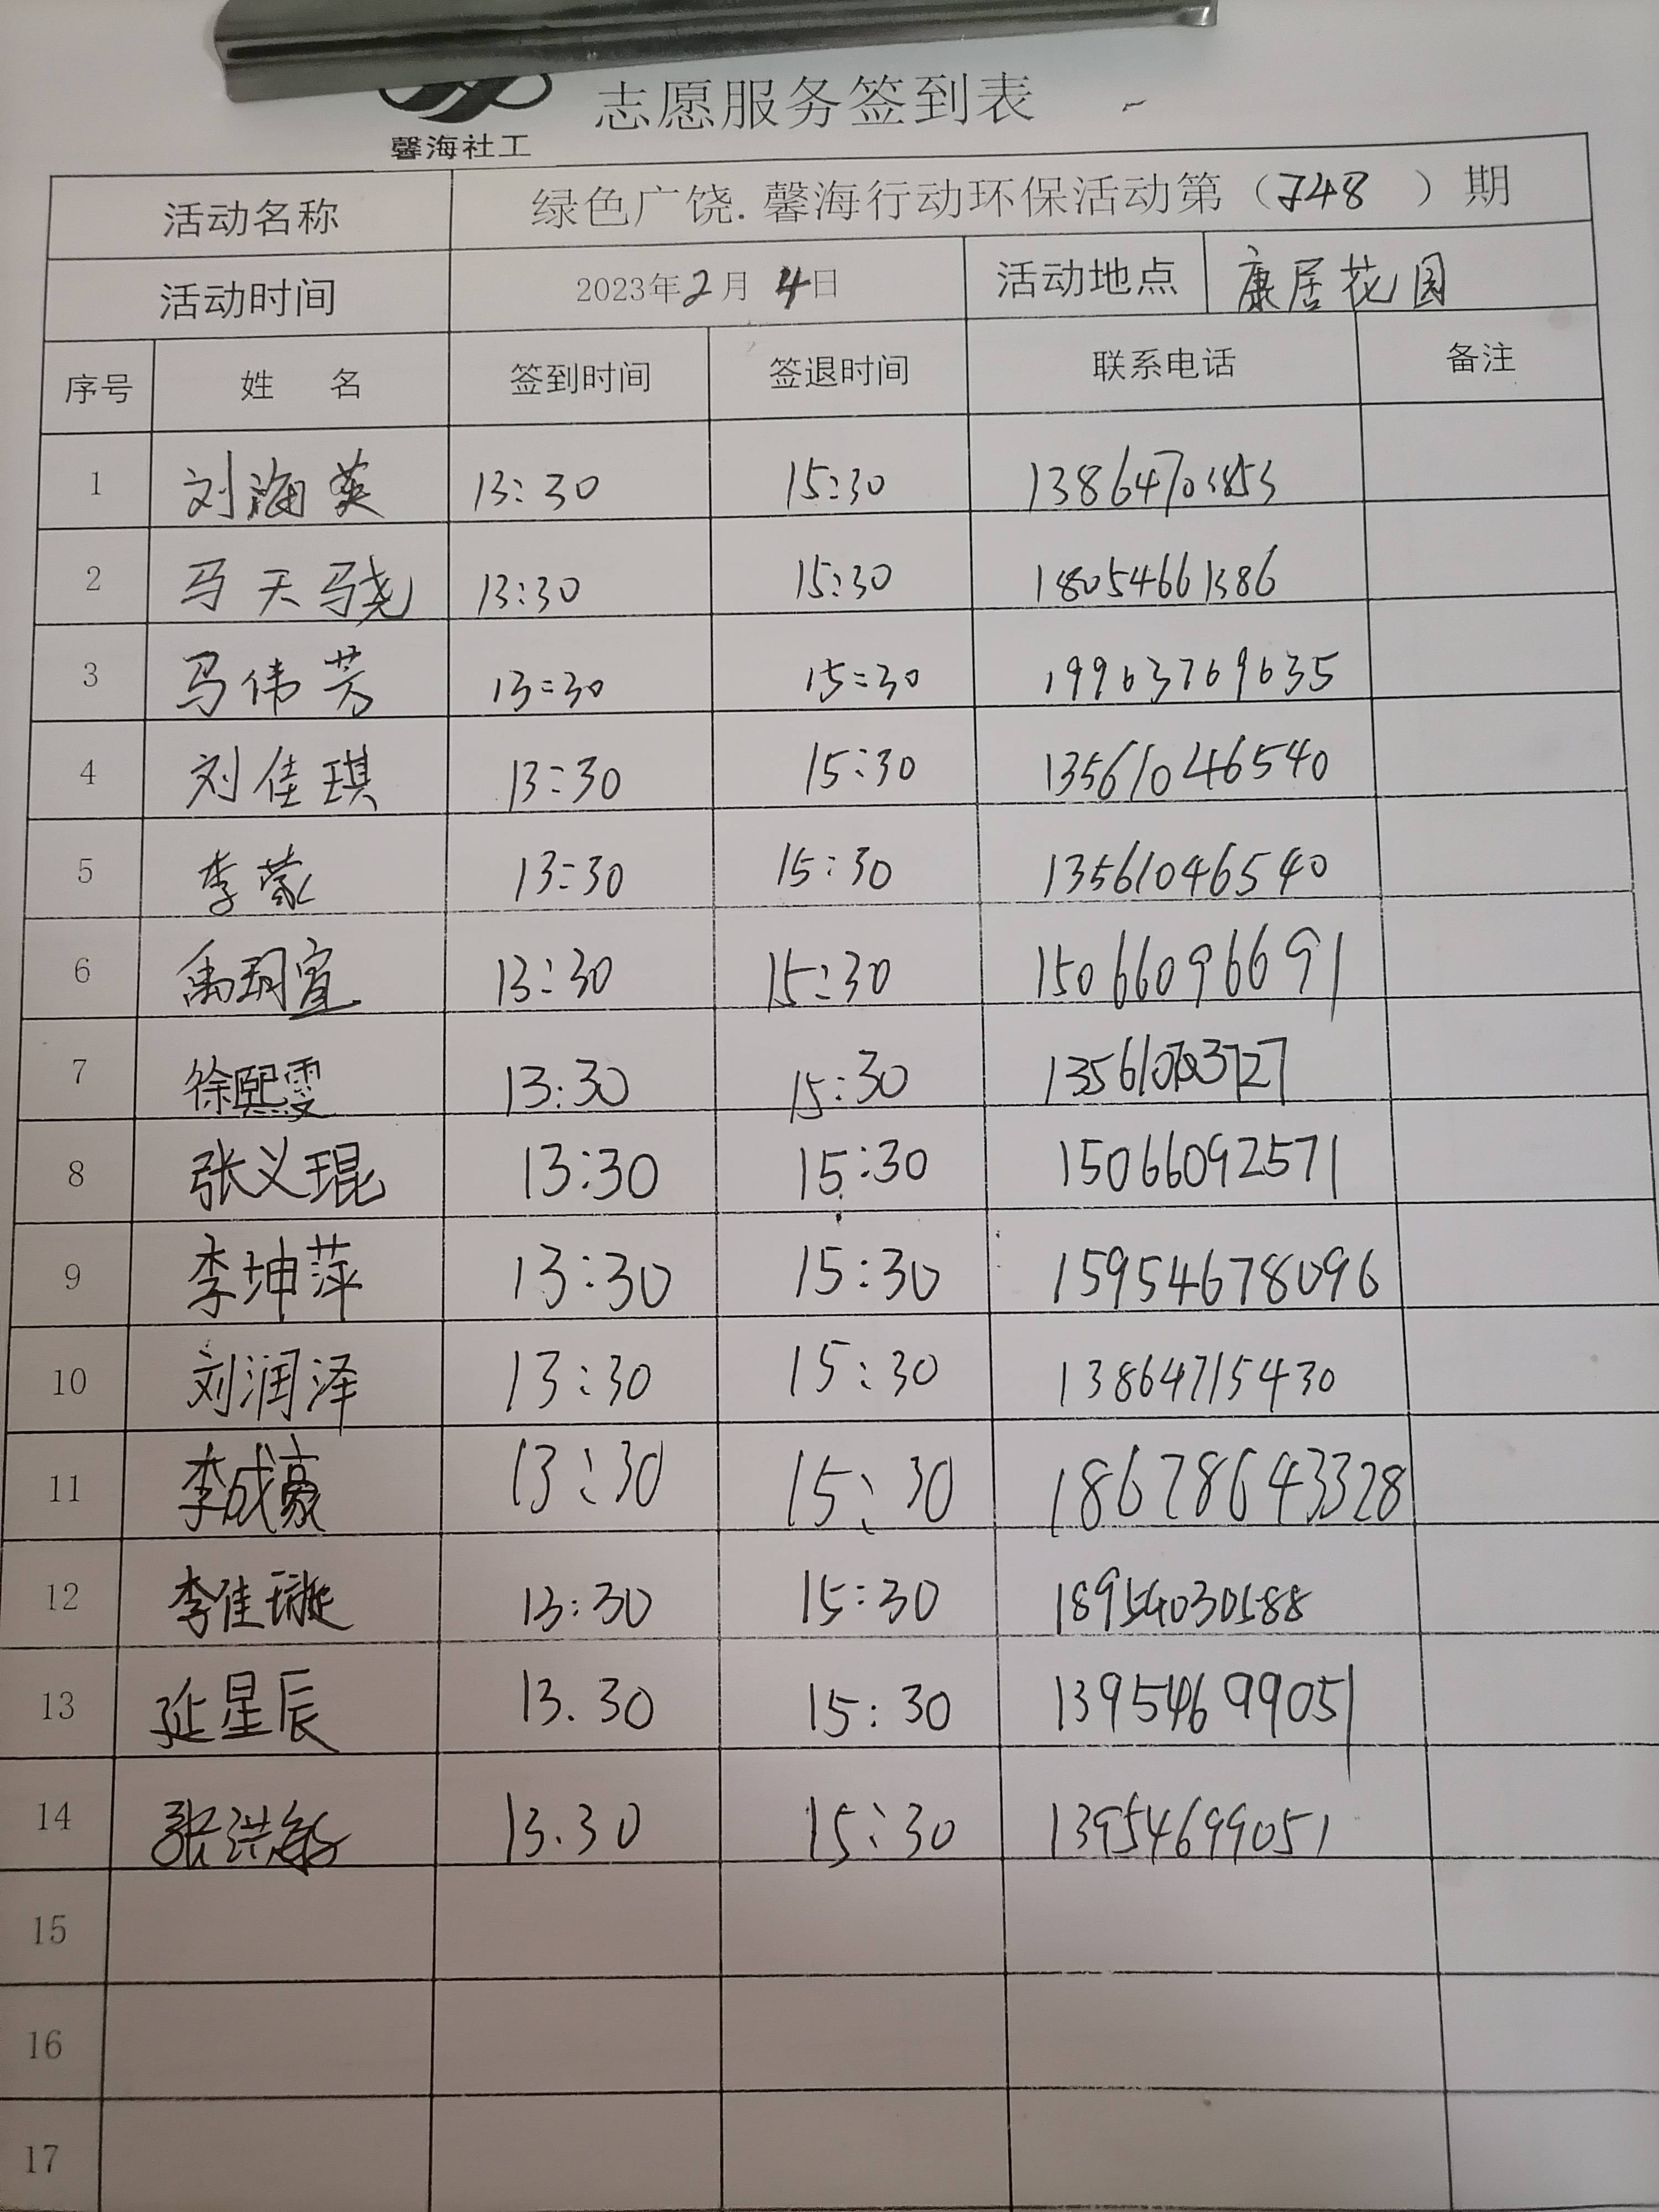 志愿服务签到表
馨海社工
活动名称 绿色广饶.馨海行动环保活动第（748）期
活动时间 2023年2月4日 活动地点 康居花园
序号 姓 名 签到时间 签退时间 联系电话 备注
1 刘海英 13:30 15:30
2 马天骁 13:30 15:30 18054661386
3 马伟芳 13:30 15:30 19963769635
4 刘佳琪 13:30 15:30 13561046540
5 李蒙 13:30 15:30 13561046540
6 禹玥宣 13:30 15:30 15066096691
7 徐熙雯 13:30 15:30
8 张义琨 13:30 15:30 15066092571
9 李坤萍 13:30 15:30 15954678096
10 刘润泽 13:30 15:30 13864715430
11 李成豪 13:30 15:30 18678643328
12 李佳璇 13:30 15:30 18954030588
13 延星辰 13.30 15:30 13954699051
14 张洪敏 13.30 15:30 13954699051
15
16
17